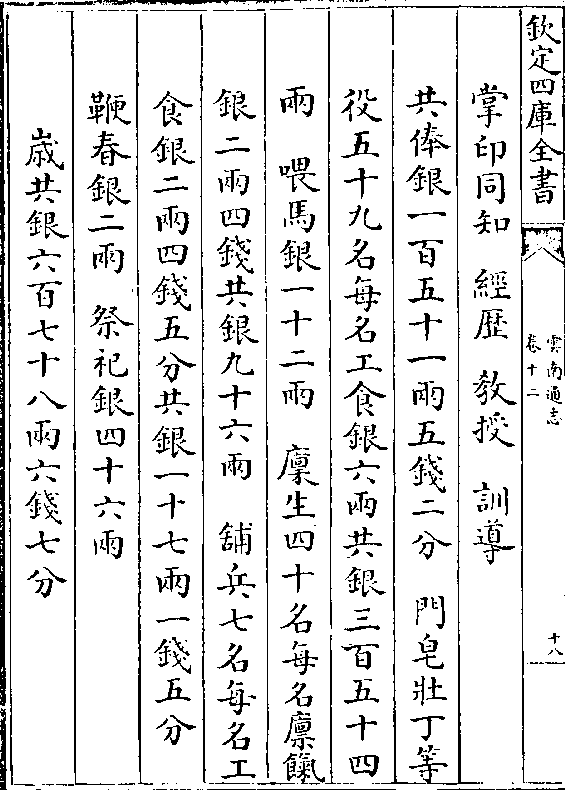 欽定四庫全書
雲南通志
卷十二
十八
掌印同知　經歴　教授　訓導
共俸銀一百五十一兩五錢二分　門皂壯丁等
役五十九名每名工食銀六兩共銀三百五十四
兩　喂馬銀一十二兩　廩生四十名每名廩餼
銀二兩四錢共銀九十六兩　舖兵七名每名工
食銀二兩四錢五分共銀一十七兩一錢五分
鞭春銀二兩　祭祀銀四十六兩
歳共銀六百七十八兩六錢七分